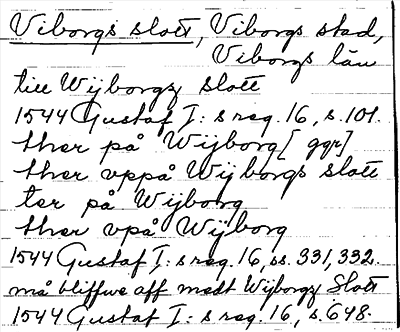 Viborgs slott, Viborgs stad,
Viborgs län
till Wijborgz slott
1544 Gustaf I:s reg. 16, s. 101.
ther på Wijborg [ ggr]
ther vppå Wijborgs slott
ter på Wijborg
ther vpå Wijborg
1544 Gustaf I:s reg. 16, ss. 331, 332.
må bliffwe aff medt Wijborgz Slott
1544 Gustaf I:s reg. 16, s. 648.